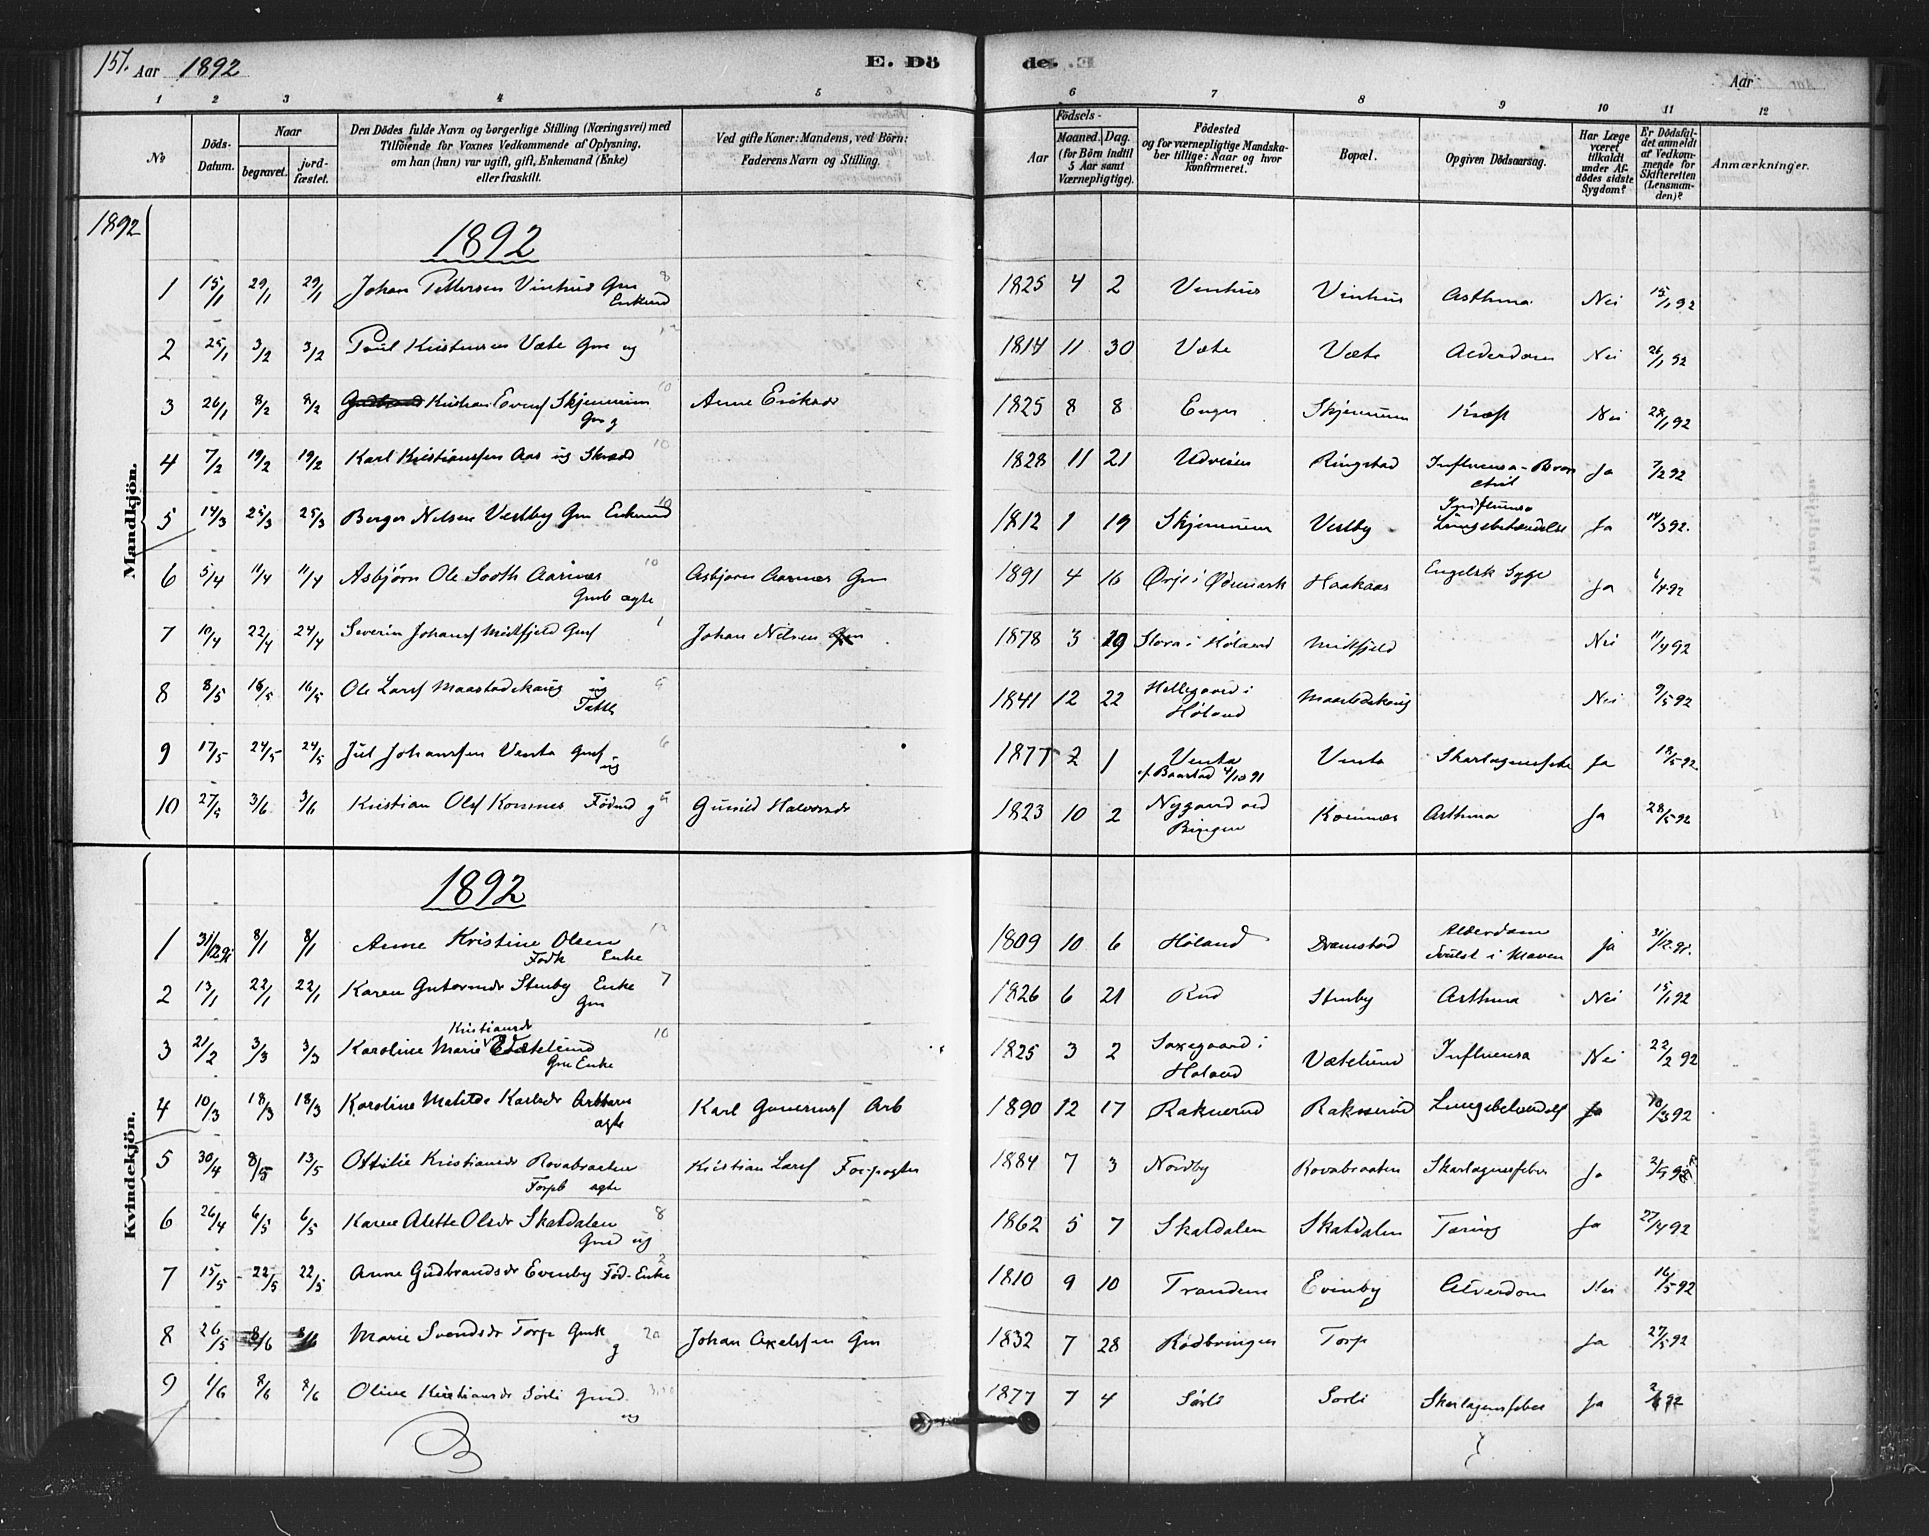 157. Aar 1892 E. Dö de. Aar
1 2 3 4 5 6 7 8 9 10 11 12
No
Döds-Datum.
Naar
begravet.
jord-fæstet.
Den Dödes fulde Navn og borgerlige Stilling (Næringsvei) med
Tilföiende for Voxnes Vedkommende af Oplysning,
om han (hun) var ugift, gift, Enkemand (Enke)
eller fraskilt.
Ved gifte Koner: Mandens, ved Börn:
Faderens Navn og Stilling.
Födsels-
Aar
Maaned. Dag.
(for Börn indtil 5 Aar samt Værnepligtige).
Födested
og for værnepligtige Mandska-
ber tillige: Naar og hvor
konfirmeret.
Bopæl.
Opgiven Dödsaarsag.
Har Læge været tilkaldt under Af-dödes sidste Sygdom?
Er Dödsfal-det anmeldt af Vedkom-mende for Skifteretten (Lensman-den)?
Anmærkninger.
1892
Mandkjön.
1892
1 15/1 29/1 29/1 Johan Pettersen Vinhus Gm Enkmd 8 1825 4 2 Venhus Vinhus Asthma Nei 15/1 92
2 25/1 3/2 3/2 Poul Kristensen Væte Gm ug 12 1814 11 30 Væte Væte Alderdom Nei 26/1 92
3 26/1 8/2 8/2 Kristian Evens Skjennum Gm g 10 Anne Eriksdr 1825 8 8 Enger Skjennum Kræft Nei 28/1 92
4 7/2 19/2 19/2 Karl Kristiansen Aas ug Skræd 10 1828 11 21 Ringstad Influensa - Bron chit Ja 7/2 92
5 14/3 25/3 25/3 Berger Nilsen Vestby Gm Enkmd 10 1812 1 19 Skjennum Vestby Influensa Lungebetændelse Ja 14/3 92.
6 5/4 11/4 11/4 Asbjörn Ole Sooth Aarnæs Gmb ægte 10 Asbjørn Aarnæs Gm 1891 4 16 Ørje i Ødemark Haakaas Engelsk Syge Ja 6/4 92
7 10/4 22/4 24/4 Severin Johans Midtfjeld Gms 1 Johan Nilsen Gm 1878 3 29 Slora i Høland Midtfjeld Nei 11/4 92
8 8/5 16/5 16/5 Ole Lars Maastadskaug ug Fattl 9 1841 12 22 Hellegaard i Høland Maastadskaug Nei 9/5 92
9 17/5 24/5 24/5 Jul Johansen Venta Gms ug 6 1877 2 1 Venta f. Baastad 4/10 91 Venta Skarlagensfeb Ja 18/5 92
10 27/5 3/6 3/6 Kristian Ols Komnæs Födmd g Gunild Halvorsdr 1823 10 2 Nygaard ved Bingen Komnæs Asthma Ja 28/5 92
Kvindekjön.
1892
1 31/12 91 8/1 8/1 Anne Kristine Olsen Födk Enke 12 1809 10 6 Høland Dramstad Alderdom Svulst i Maven Ja 31/12 91.
2 13/1 22/1 22/1 Karen Gutormsdr Stenby Enke Gm 7 1826 6 21 Rud Stenby Asthma Nei 15/1 92
3 21/2 3/3 3/3 Karoline Marie Kristiansdr Vætelund Gm Enke 10 1825 3 2 Saxegaard i Høland Vætelund Influensa Nei 22/2 92
4 10/3 18/3 18/3 Karoline Matilde Karlsdr Arbbarn ægte Karl Gunerius Arb 1890 12 17 Raknerud Raknerud Lungebetændels Ja 10/3 92
5 30/4 8/5 13/5 Ottilie Kristiansdr Rovabraaten Forpb ægte Kristian Lars Forpagter 1884 7 3 Nordby Rovabraaten Skarlagensfeber Ja 2/5 92
6 26/4 6/5 6/5 Karen Alette Olsdr Skatdalen Gmd ug 8 1862 5 7 Skatdalen Skatdalen Tæring Ja 27/4 92
7 15/5 22/5 22/5 Anne Gudbrandsdr Evenby Föd-Enke 2 1810 9 10 Tranden Evenby Alderdom Nei 16/5 92
8 26/5 8/6 8/6 Marie Svendsdr Torp Gmk g 20 Johan Axelssen Gm 1832 7 28 Rødbringen Torp Ja 27/5 92
9 1/6 8/6 8/6 Oline Kristiansdr Sörli Gmd ug 1877 7 4 Sörli Sorli Skarlagensfeber Ja 2/6 92